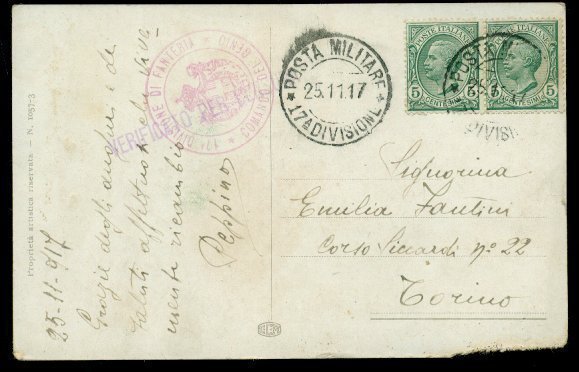 25-11-917
Grazie degli auguri e dei
saluti affettuosi che viva-
mente ricambio
Peppino
Proprietà artistica riservata - N. 1057-3
COMANDO DEL GENIO
17ª DIVISIONE DI FANTERIA
VERIFICATO PER
POSTA MILITARE
25.11.17
17ª DIVISIONE
POSTE ITALIANE
5 CENTESIMI 5
POSTE ITALIANE
5 CENTESIMI 5
POSTA M
DIVISI
Signorina
Emilia Fantini
Corso Siccardi nº 22
Torino